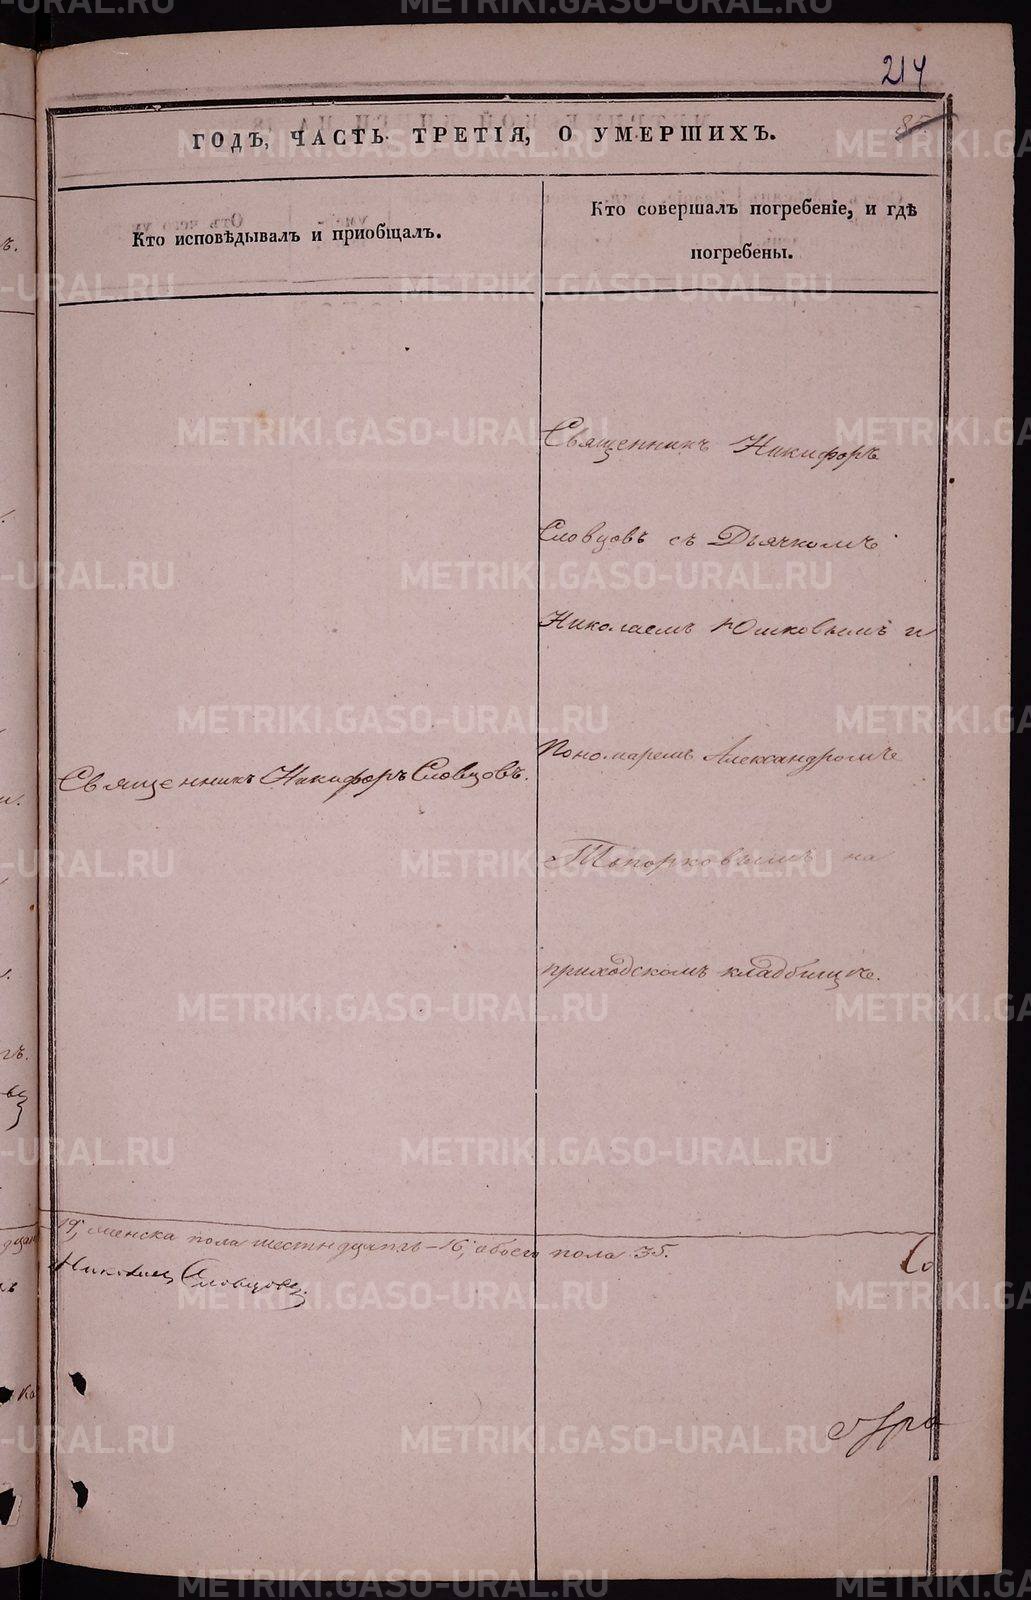 214
ГОДЪ, ЧАСТЬ ТРЕТІЯ, О УМЕРШИХЪ.
Кто исповѣдывалъ и пріобщалъ.
Кто совершалъ погребеніе, и гдѣ
погребены.
Священникъ Никифоръ
Словцовъ съ Дьячкомъ
Николаемъ Юшковымъ и
Пономаремъ Александромъ
Топорковымъ на
приходскомъ кладбищѣ.
Священникъ Никифоръ Словцовъ.
19, женска пола шестнадцать - 16, обоего пола 35.
Словцовъ.
METRIKI.GASO-URAL.RU